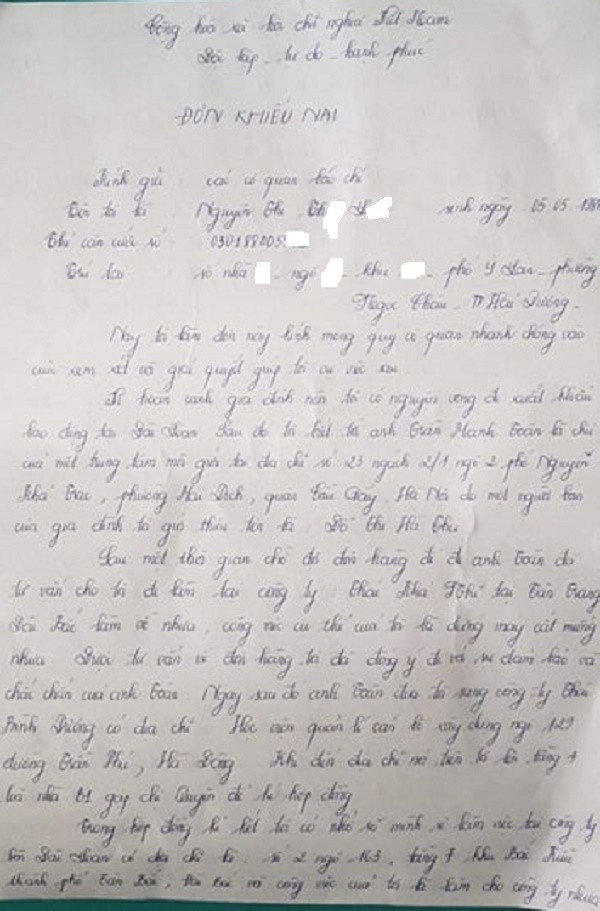 Cộng hòa xã hội chủ nghĩa Việt Nam
Độc lập - tự do - hạnh phúc
ĐƠN KHIẾU NẠI
Kính gửi : các cơ quan báo chí
Tên tôi là : Nguyễn Thị sinh ngày 05.05.1988
Thẻ căn cước số : 030188005
Trú tại : số nhà ngõ khu phố Ỷ Lan - phường
Ngọc Châu - TP Hải Dương.
Nay tôi làm đơn này kính mong quý cơ quan nhanh chóng vào
cuộc xem xét và giải quyết giúp tôi vụ việc sau
Vì hoàn cảnh gia đình nên tôi có nguyện vọng đi xuất khẩu
lao động tại Đài Loan. Sau đó tôi biết tới anh Trần Mạnh Toàn là chủ
của một trung tâm môi giới tại địa chỉ số 23 ngách 2/1 ngõ 2 phố Nguyễn
Khả Trạc, phường Mai Dịch, quận Cầu Giấy Hà Nội do một người bạn
của gia đình tôi giới thiệu tên là : Đỗ Thị Hà Thu
Sau một thời gian chờ đợi đơn hàng để đi anh Toàn đã
tư vấn cho tôi đi làm tại công ty : Khả tại Tân Trang
Đài Bắc làm về nhựa, công việc cụ thể của tôi là đứng máy cắt miếng
nhựa Được tư vấn về đơn hàng tôi đã đồng ý đi với sự đảm bảo và
chắc chắn của anh Toàn. Ngay sau đó anh Toàn đưa tôi sang công ty Thái
Bình Dương có địa chỉ Học viện quản lí cán bộ xây dựng ngõ 129
đường Trần Phú, Hà Đông Khi đến địa chỉ nói trên tôi lên tầng 7
toà nhà B1 gặp chị Quyên để kí hợp đồng
Trong hợp đồng kí kết tôi có nhớ số mình sẽ làm việc tại công ty
bên Đài Loan có địa chỉ là : số 2 ngõ 163, tầng 7 khu Bản Kiều
thành phố Tân Bắc, Đài Bắc và công việc của tôi là làm cho công ty nhựa